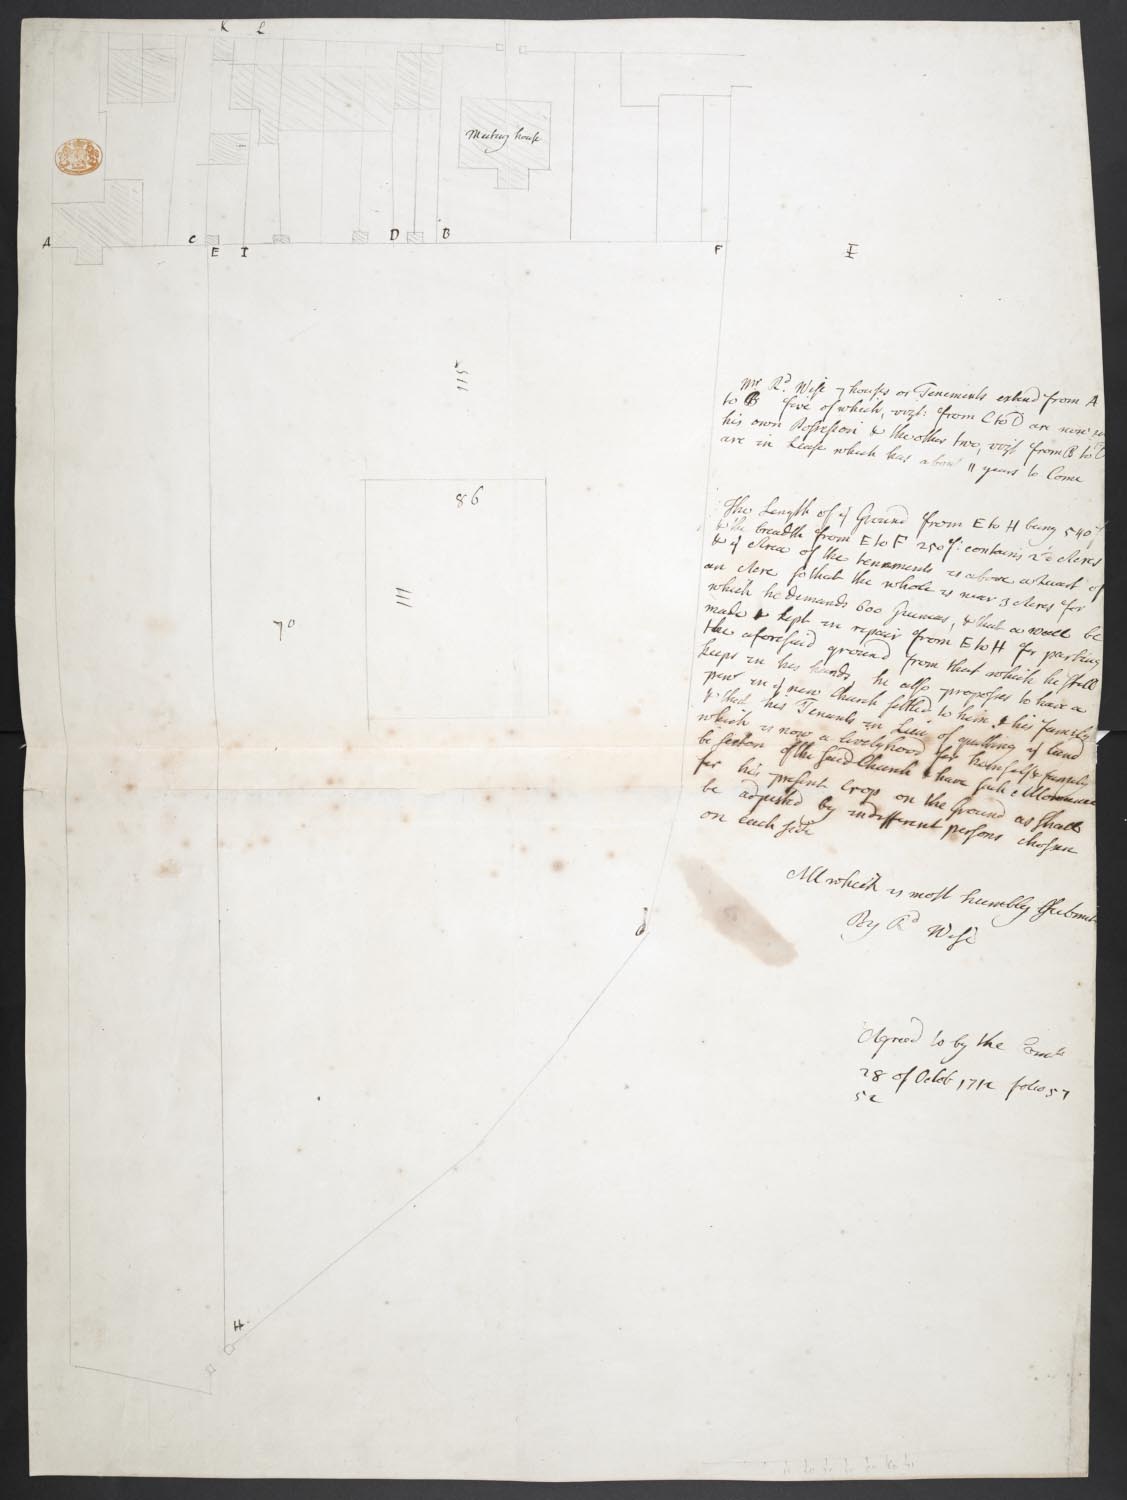 K L
Meeting house
A
C
E I
D
B
F
I
115
86
111
70
G
H
Mr Rd Wise 7 houses or Tenements extend from A
to B five of which, vizt: from C to D are now in
his own Possession & the other two, vizt from B to D
are in Lease which has about 11 years to Come
The Length of ye Ground from E to H being 540 f
& the breadth from E to F 250 f: contains 2 Acres
& ye Area of the tenements is above a Quart of
an Acre so that the whole is near 3 Acres for
which he demands 600 Guineas, & that a wall be
made & kept in repair from E to H for parting
the aforesaid ground from that which he still
keeps in his hands, he also proposes to have a
pew in ye new Church settled to him & his family
& that his Tenants in Lieu of quitting ye Land
which is now a livelyhood for himself & family
be Sexton of the said Church & have such Allowance
for his present Crop on the Ground as shall
be adjusted by indifferent persons chosen
on each side
All which is most humbly Submit
By Rd Wise
Agreed to by the Comte
28 of Octob 1712 folio 57
52